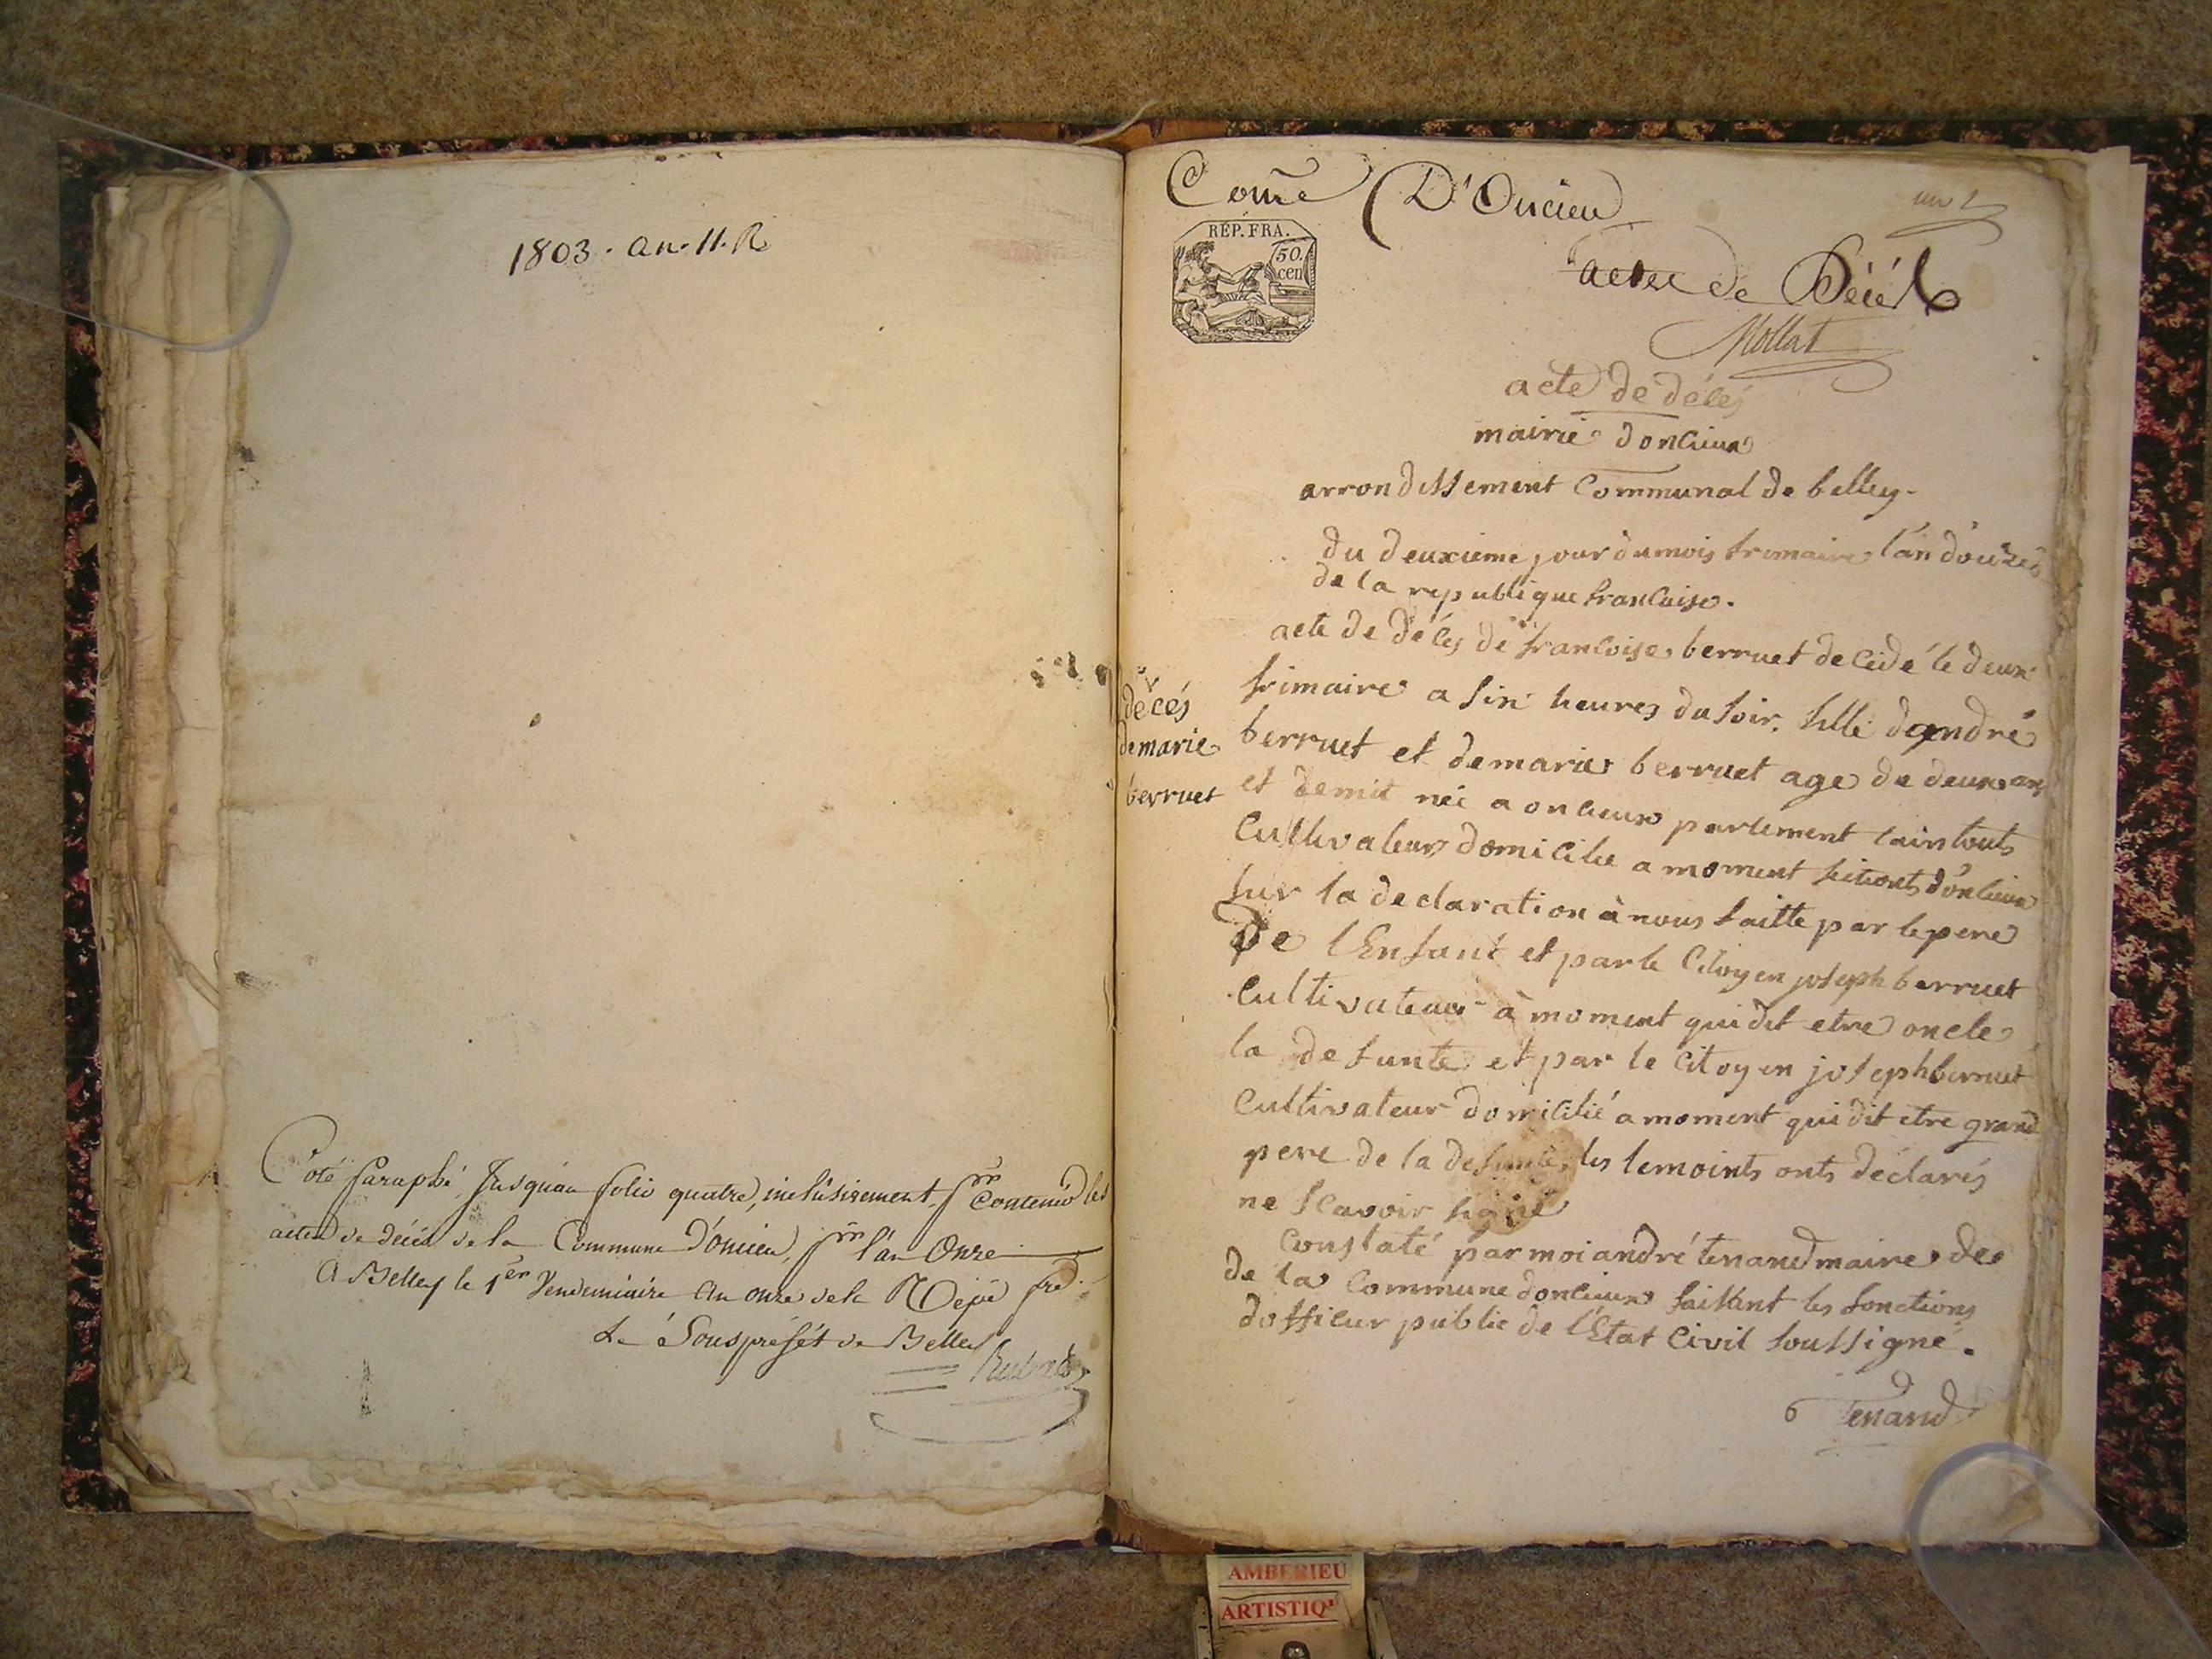 1803. an. 11. R
Coté paraphé Jusquau folio quatre, inclusivement, pr Contenir les
actes de décès de la Commune D'oncieu, pr l'an Onze
A Belley le 1er Vendemiaire An onze de la Repe fre
Le Sous préfét de Belley
Come D'Oncieu
RÉP. FRA.
50.
cen
actes de Décès
Mollat
acte de décés
mairie donlieux
arrondissement Communal de belley-
du deuxieme jour du mois frimaire l'an douzes
de la republique francaise.
acte de décés de francoise berruet decidé le deux
frimaire a six heures du soir. fille dandré
berruet et demarie berruet age de deux ans
et demit née a onlieux partement
Cultivateur domicilie a moment donlieux
sur la declaration à nous faitte par lepere
De lEnfant et par le Citoyen joseph berruet
Cultivateur à moment qui dit etre oncle
la defunte et par le Citoyen joseph berruet
Cultivateur domicilié a moment qui dit etre grand
pere de la defunte, les temoints onts déclarés
ne scavoir signé
Constaté par moi andré tenand maire de
de la Commune donlieux faisant les fonctions
dofficier public de l'Etat Civil soussigné.
Tenand
décés
demarie
berruet
AMBERIEU
ARTISTIQ